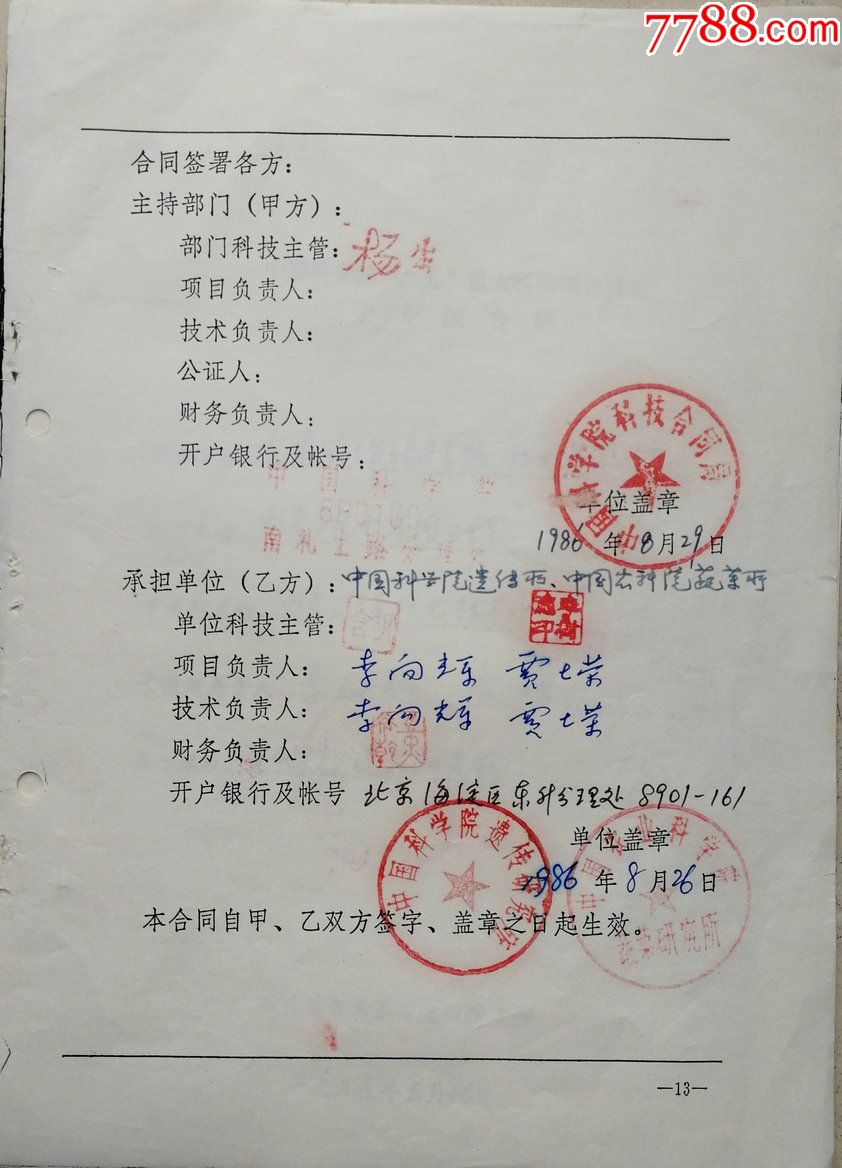 7788.com
合同签署各方：
主持部门（甲方）：
部门科技主管：杨生
项目负责人：
技术负责人：
公证人：
财务负责人：
开户银行及帐号：
中国科学院
南礼士路分理处
中国科学院科技合同局
单位盖章
1986 年 8 月 29 日
承担单位（乙方）：中国科学院遗传所、中国农科院蔬菜所
单位科技主管：
项目负责人： 李向辉 贾士荣
技术负责人： 李向辉 贾士荣
财务负责人：
开户银行及帐号 北京海淀区东升分理处 8901-161
单位盖章
1986 年 8 月 26 日
中国科学院遗传研究所
中国农业科学院
蔬菜研究所
本合同自甲、乙双方签字、盖章之日起生效。
—13—